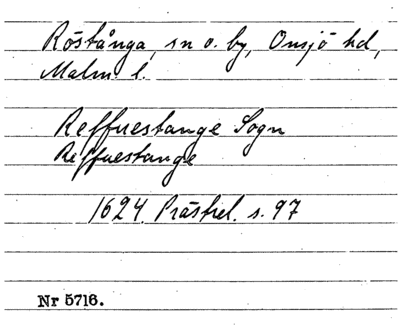 Röstånga, sn o. by, Onsjö hd,
Malm. l.
Reffuestange Sogn
Reffuestange
1624. Prästrel. s. 97
Nr 5716.